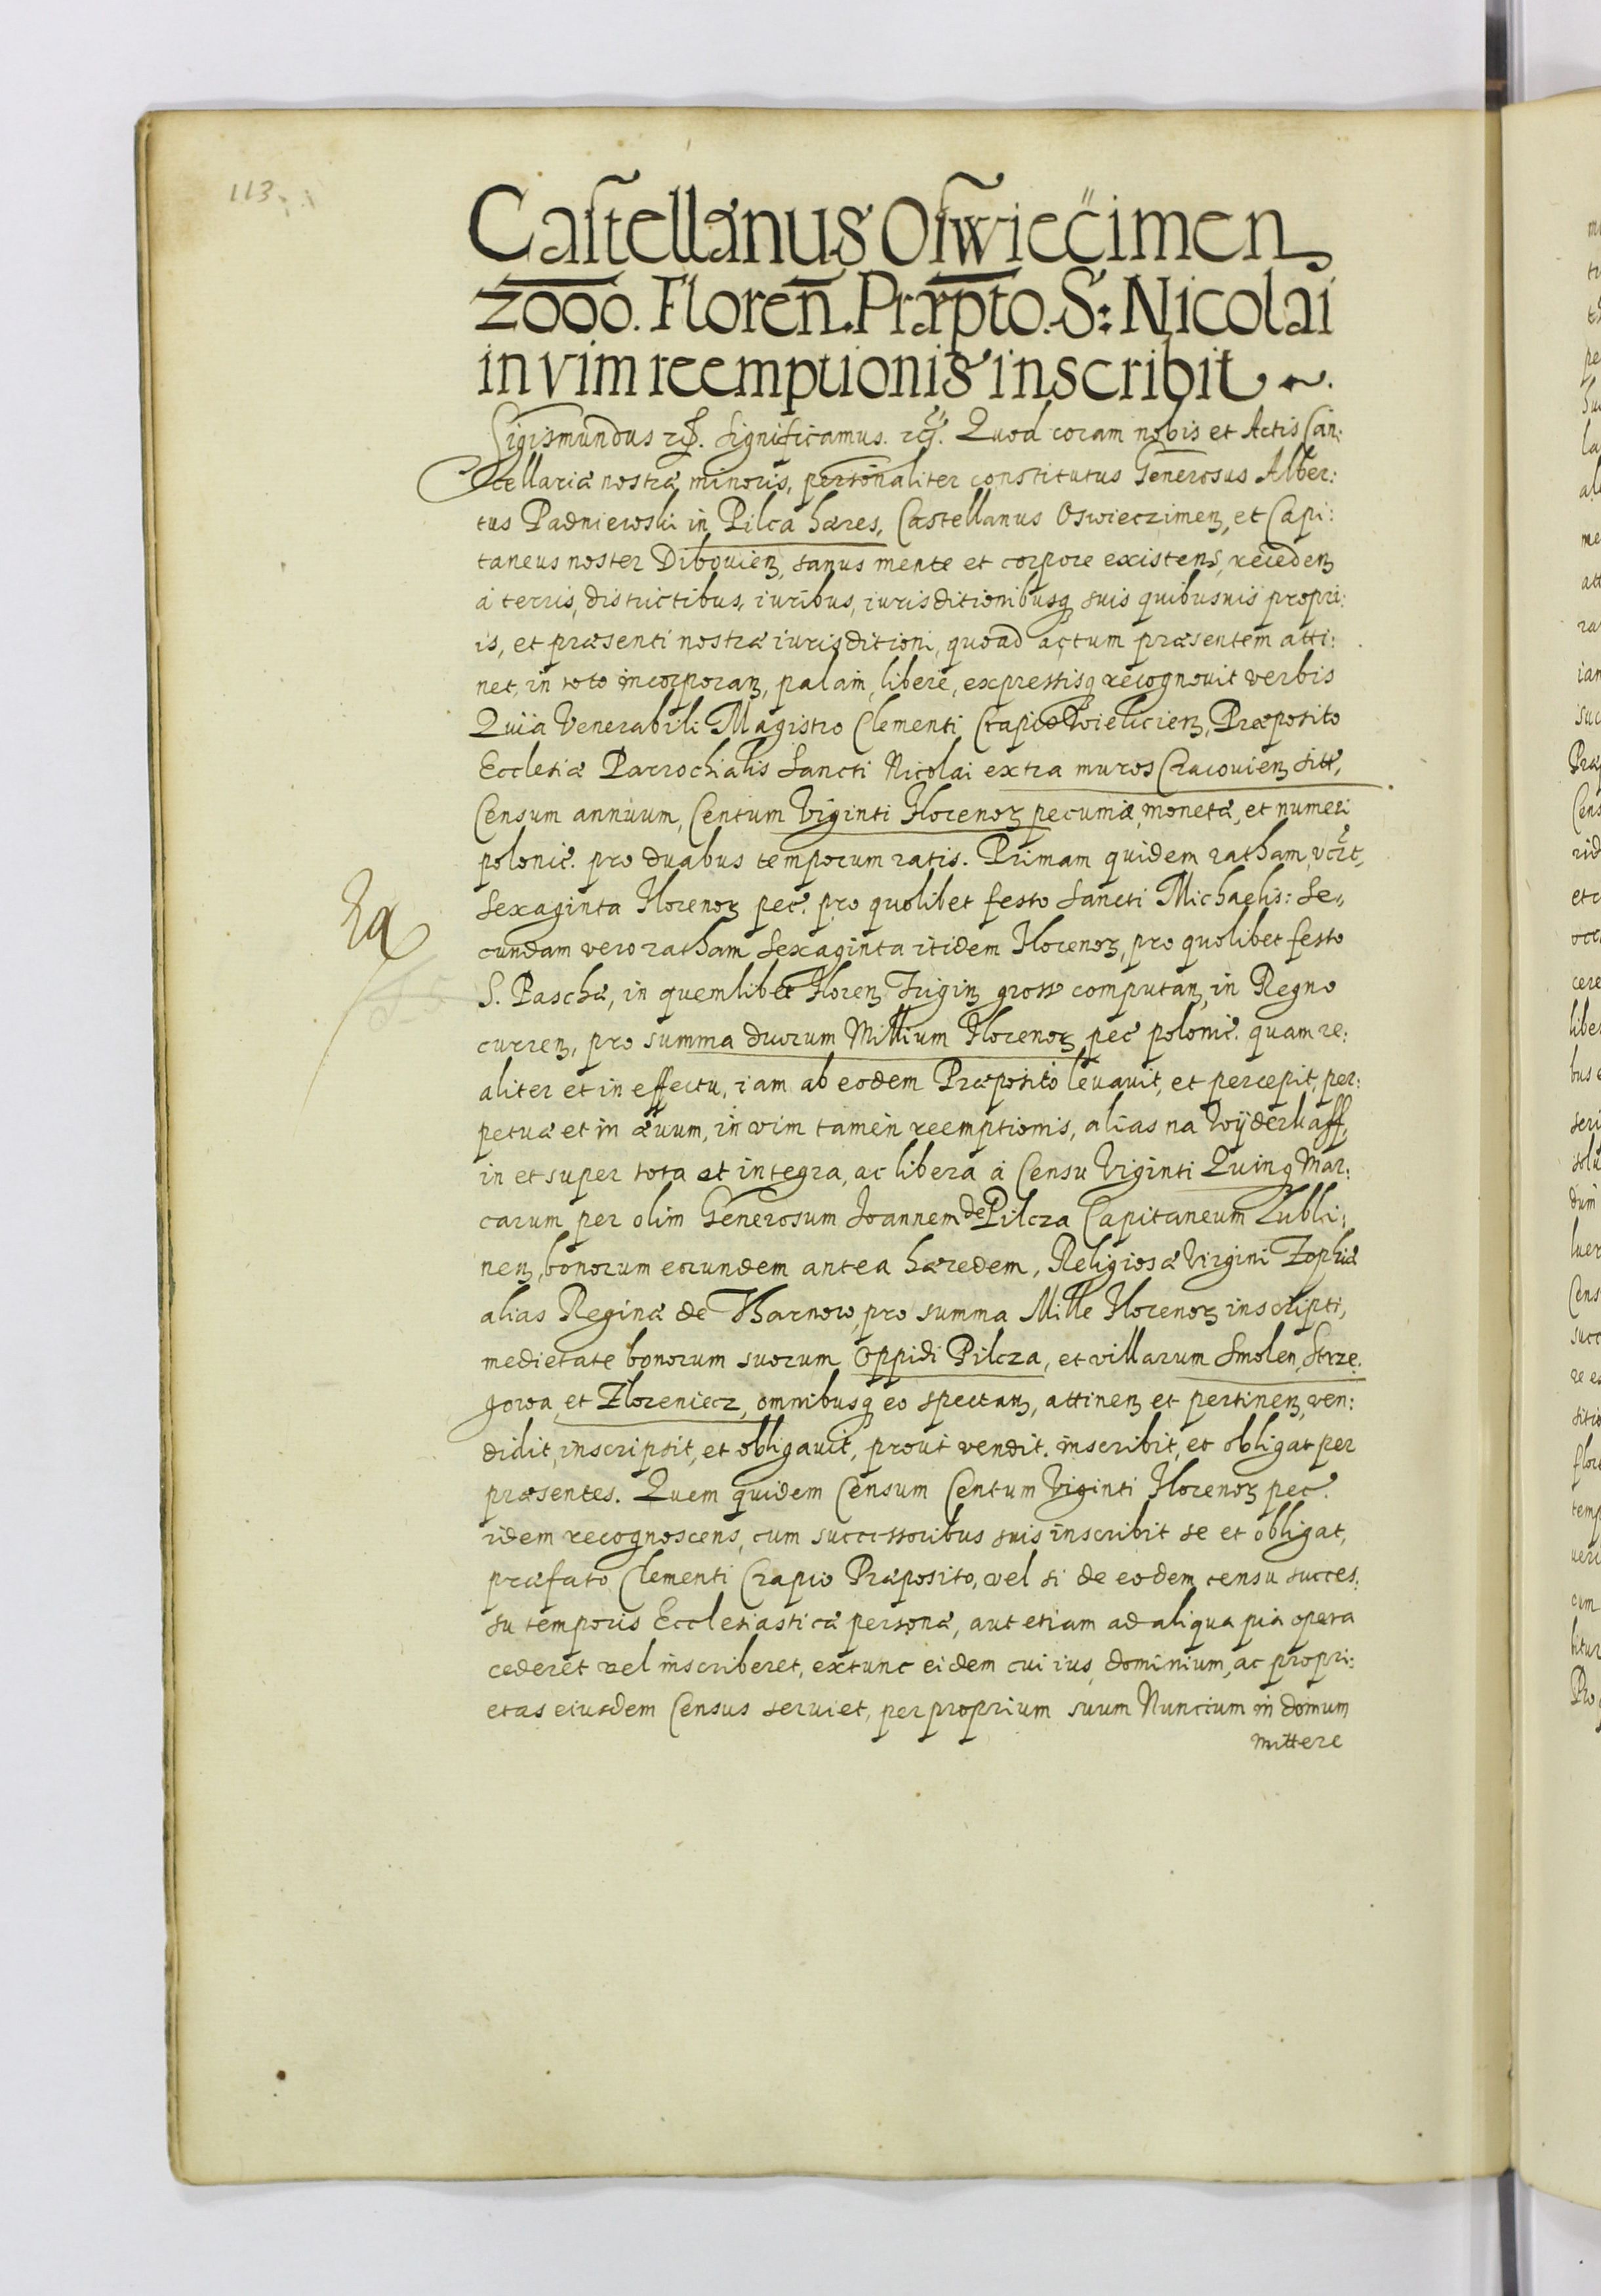 113.
Castellanus Oswiecimen
2000. Floren. Præpto. S: Nicolai
in vim reemptionis inscribit
Sigismundus etc. significamus. etc. Quod coram nobis et Actis Can:
cellariæ nostræ minoris, personaliter constitutus Generosus Alber:
tus Padniewski in Pilca hæres, Castellanus Oswieczimen, et Capi:
taneus noster Dibouien, sanus mente et corpore existens, receden
á terris, districtibus, iuribus, iurisditionibusq suis quibusuis propri:
is, et præsenti nostræ iurisditioni, quoad actum præsentem atti:
net, in toto incorporan, palam, libere, expressisq recognouit verbis
Quia Venerabili Magistro Clementi Crapio Wieliczien, Præposito
Ecclesiæ Parrochialis Sancti Nicolai extra muros Cracouien sitæ,
Censum annuum, Centum Viginti Florenor pecuniæ, monetæ, et numeri
polonic. pro duabus temporum ratis. Primam quidem ratham, vczt,
Sexaginta Florenor pec. pro quolibet festo Sancti Michaelis: Se,
cundam vero ratham Sexaginta itidem Florenor, pro quolibet festo
S. Paschæ, in quemlibet Floren Trigin gross computan, in Regno
curren, pro summa duorum Millium Florenor pec polonic. quam re:
aliter et in effectu, iam ab eodem Præposito leuauit, et percepit, per:
petuæ et in æuum, in vim tamen reemptionis, alias na Wÿderkaff,
in et super tota et integra, ac libera á Censu Viginti Quinq Mar:
carum per olim Generosum Ioannem de Pilcza Capitaneum Lubli:
nen, bonorum eorundem antea hæredem, Religiosæ Virgini Zophiæ
alias Reginæ de Tharnow, pro summa Mille Florenor inscripti,
medietate bonorum suorum Oppidi Pilcza, et villarum Smolen, Strze.
gowa, et Zloreniecz, omnibusq eo spectan, attinen et pertinen, ven:
didit, inscripsit, et obligauit, prout vendit. inscribit, et obligat per
præsentes. Quem quidem Censum Centum Viginti Florenor pec.
idem recognoscens, cum successoribus suis inscribit se et obligat,
præfato Clementi Crapio Præposito, vel si de eodem censu succes:
su temporis Ecclesiasticæ personæ, aut etiam ad aliqua pia opera
cederet vel inscriberet, extunc eidem cui ius, dominium, ac propri:
etas eiusdem Census seruiet, per proprium suum Nuncium in domum
mittere